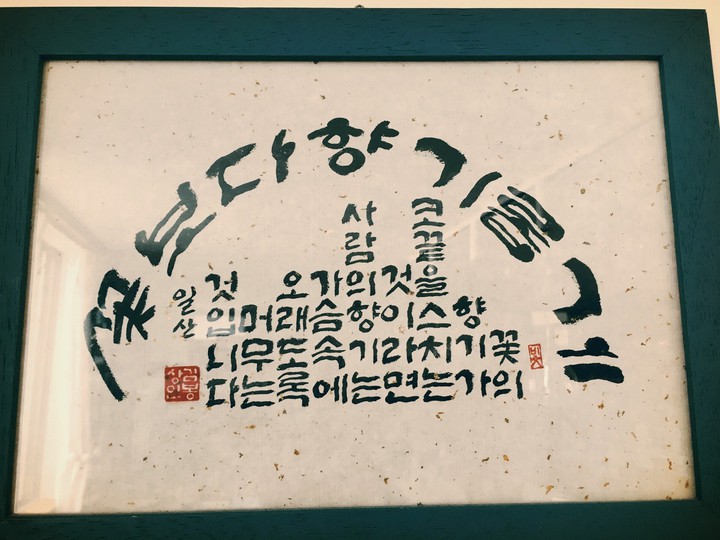 꽃보다향기롭게
꽃의
향기가
코끝을스치는
것이라면
사람의향기는
가슴속에
오래도록
머무는
것입니다
일산